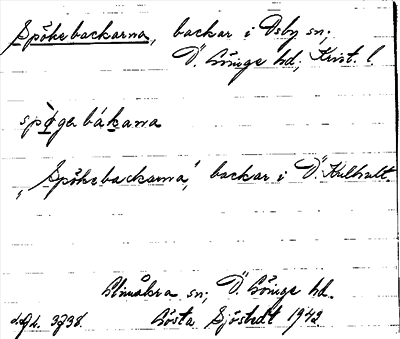 Spökebackarna, backar i Osby sn;
Ö. Göinge hd; Krist. l.
spø̀gabákarna
„Spökebackarna", backar i Ö. Kulhult.
Glimåkra sn; Ö. Göinge hd.
Gösta Sjöstedt 1942